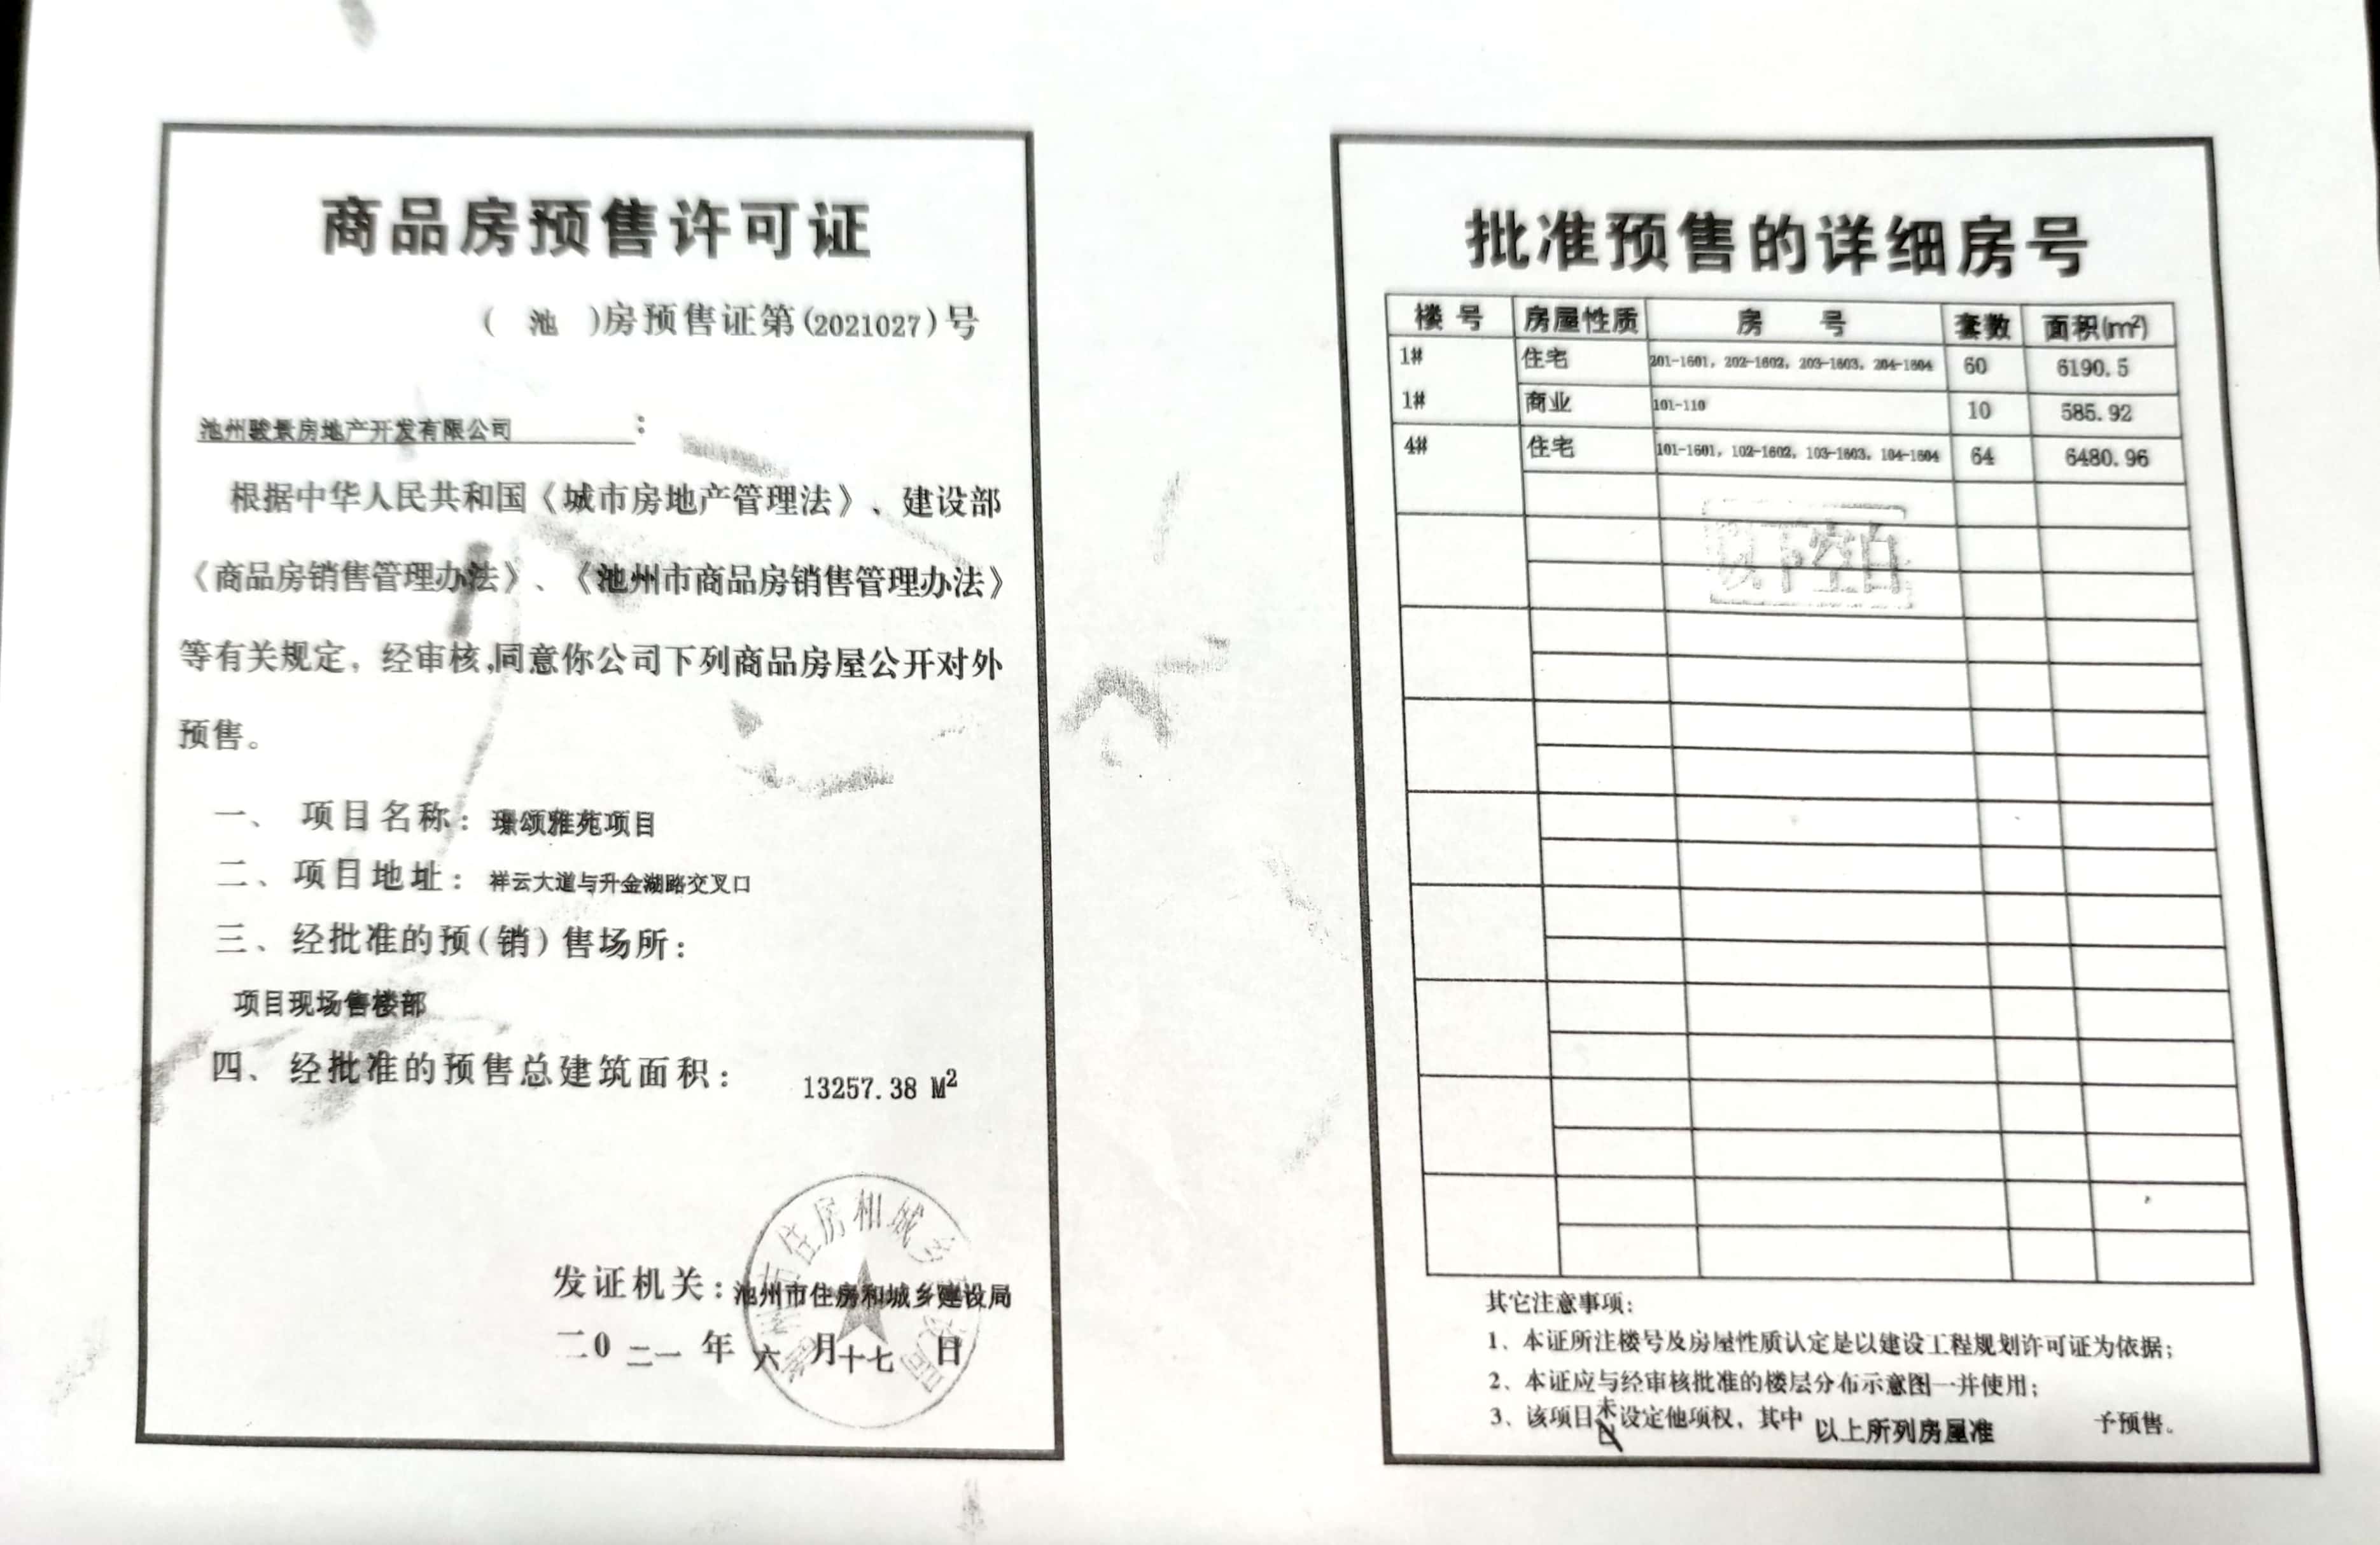 商品房预售许可证
( 池 )房预售证第(2021027)号
池州骏景房地产开发有限公司:
根据中华人民共和国《城市房地产管理法》、建设部
《商品房销售管理办法》、《池州市商品房销售管理办法》
等有关规定，经审核,同意你公司下列商品房屋公开对外
预售。
一、项目名称: 璟颂雅苑项目
二、项目地址: 祥云大道与升金湖路交叉口
三、经批准的预(销)售场所:
项目现场售楼部
四、经批准的预售总建筑面积: 13257.38 M²
发证机关: 池州市住房和城乡建设局
二0二一年六月十七日
批准预售的详细房号
楼号 房屋性质 房号 套数 面积(m²)
1# 住宅 201-1601, 202-1602, 203-1603, 204-1604 60 6190.5
1# 商业 101-110 10 585.92
4# 住宅 101-1601, 102-1602, 103-1603, 104-1604 64 6480.96
以下空白
其它注意事项:
1、本证所注楼号及房屋性质认定是以建设工程规划许可证为依据;
2、本证应与经审核批准的楼层分布示意图一并使用;
3、该项目未已设定他项权, 其中 以上所列房屋准 予预售。